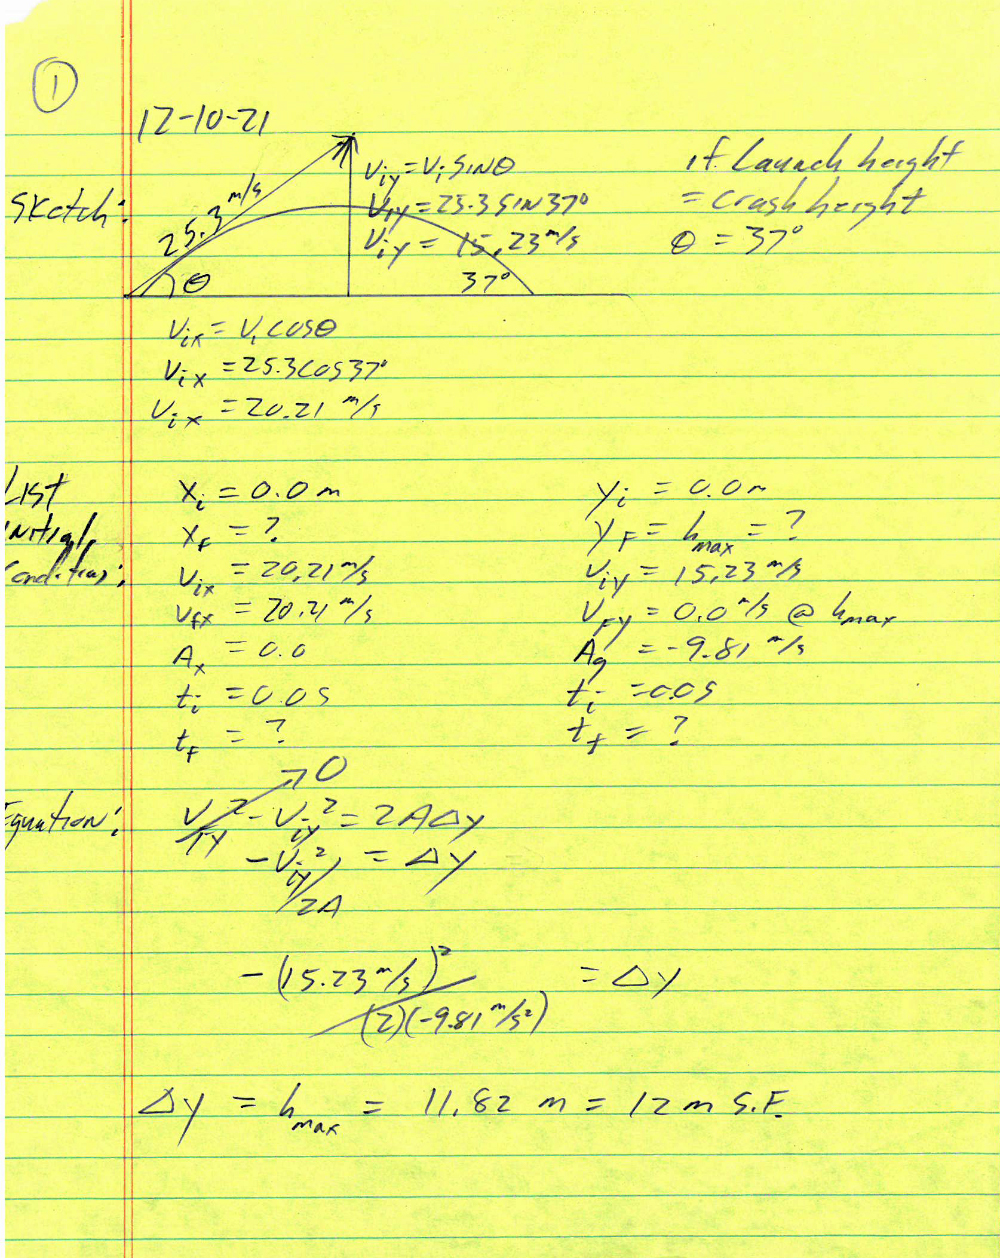 1
12-10-21
Sketch:
25.3 m/s
θ
Viy = Vi SINθ
Viy = 25.3 SIN 37°
Viy = 15.23 m/s
37°
if Launch height
= crash height
θ = 37°
Vix = Vi COSθ
Vix = 25.3 COS 37°
Vix = 20.21 m/s
List Initial Conditions:
Xi = 0.0 m
Xf = ?
Vix = 20.21 m/s
Vfx = 20.21 m/s
Ax = 0.0
ti = 0.0 S
tf = ?
Yi = 0.0 m
YF = hmax = ?
Viy = 15.23 m/s
VFy = 0.0 m/s @ hmax
Ag = -9.81 m/s
ti = 0.0 S
tf = ?
Equation:
0
Vfy² - Viy² = 2AΔY
-Viy²/2A = ΔY
-(15.23 m/s)²/(2)(-9.81 m/s²) = ΔY
ΔY = hmax = 11.82 m = 12 m S.F.